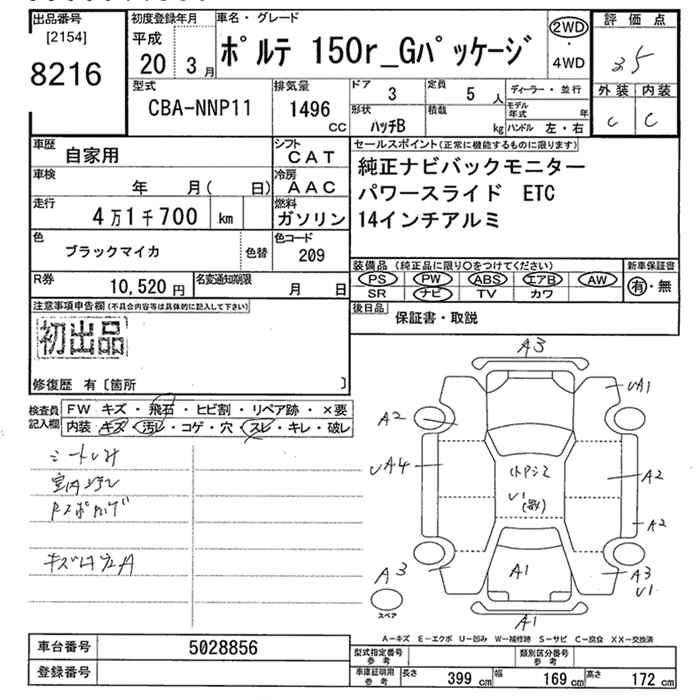 出品番号 初度登録年月 車名・グレード 評価点
[2154] 平成 ポルテ 150r_Gパッケージ 2WD・4WD
8216 20 3月 3.5
型式 排気量 ドア 3 定員 5人 ディーラー・並行 外装 内装
CBA-NNP11 1496cc 形状 ハッチB 積載 kg モデル年式 年 C C
ハンドル 左・右
車歴 自家用 シフト CAT セールスポイント(正常に機能するものに限ります)
車検 年 月( 日) 冷房 AAC 純正ナビバックモニター
走行 4万1千700 km 燃料 ガソリン パワースライド ETC
14インチアルミ
色 ブラックマイカ 色替 色コード 209
装備品(純正品に限り○をつけてください) 新車保証書
R券 10,520円 名変通知期限 月 日 PS PW ABS エアB AW 有・無
SR ナビ TV カワ
注意事項申告欄(不具合内容等は具体的に記入して下さい) 後日品 保証書・取説
初出品
修復歴 有〔箇所 〕
検査員記入欄 FW キズ・飛石・ヒビ割・リペア跡・×要
内装 キズ・汚レ・コゲ・穴・スレ・キレ・破レ
A3
UA1
A2
UA4
A2
A2
U1
A1
A3
A3
U1
スペア
A1
A-キズ E-エクボ U-凹み W-補修跡 S-サビ C-腐食 XX-交換済
車台番号 5028856 型式指定番号 参考 類別区分番号 参考
登録番号 車庫証明用 参考 長さ 399cm 幅 169cm 高さ 172cm